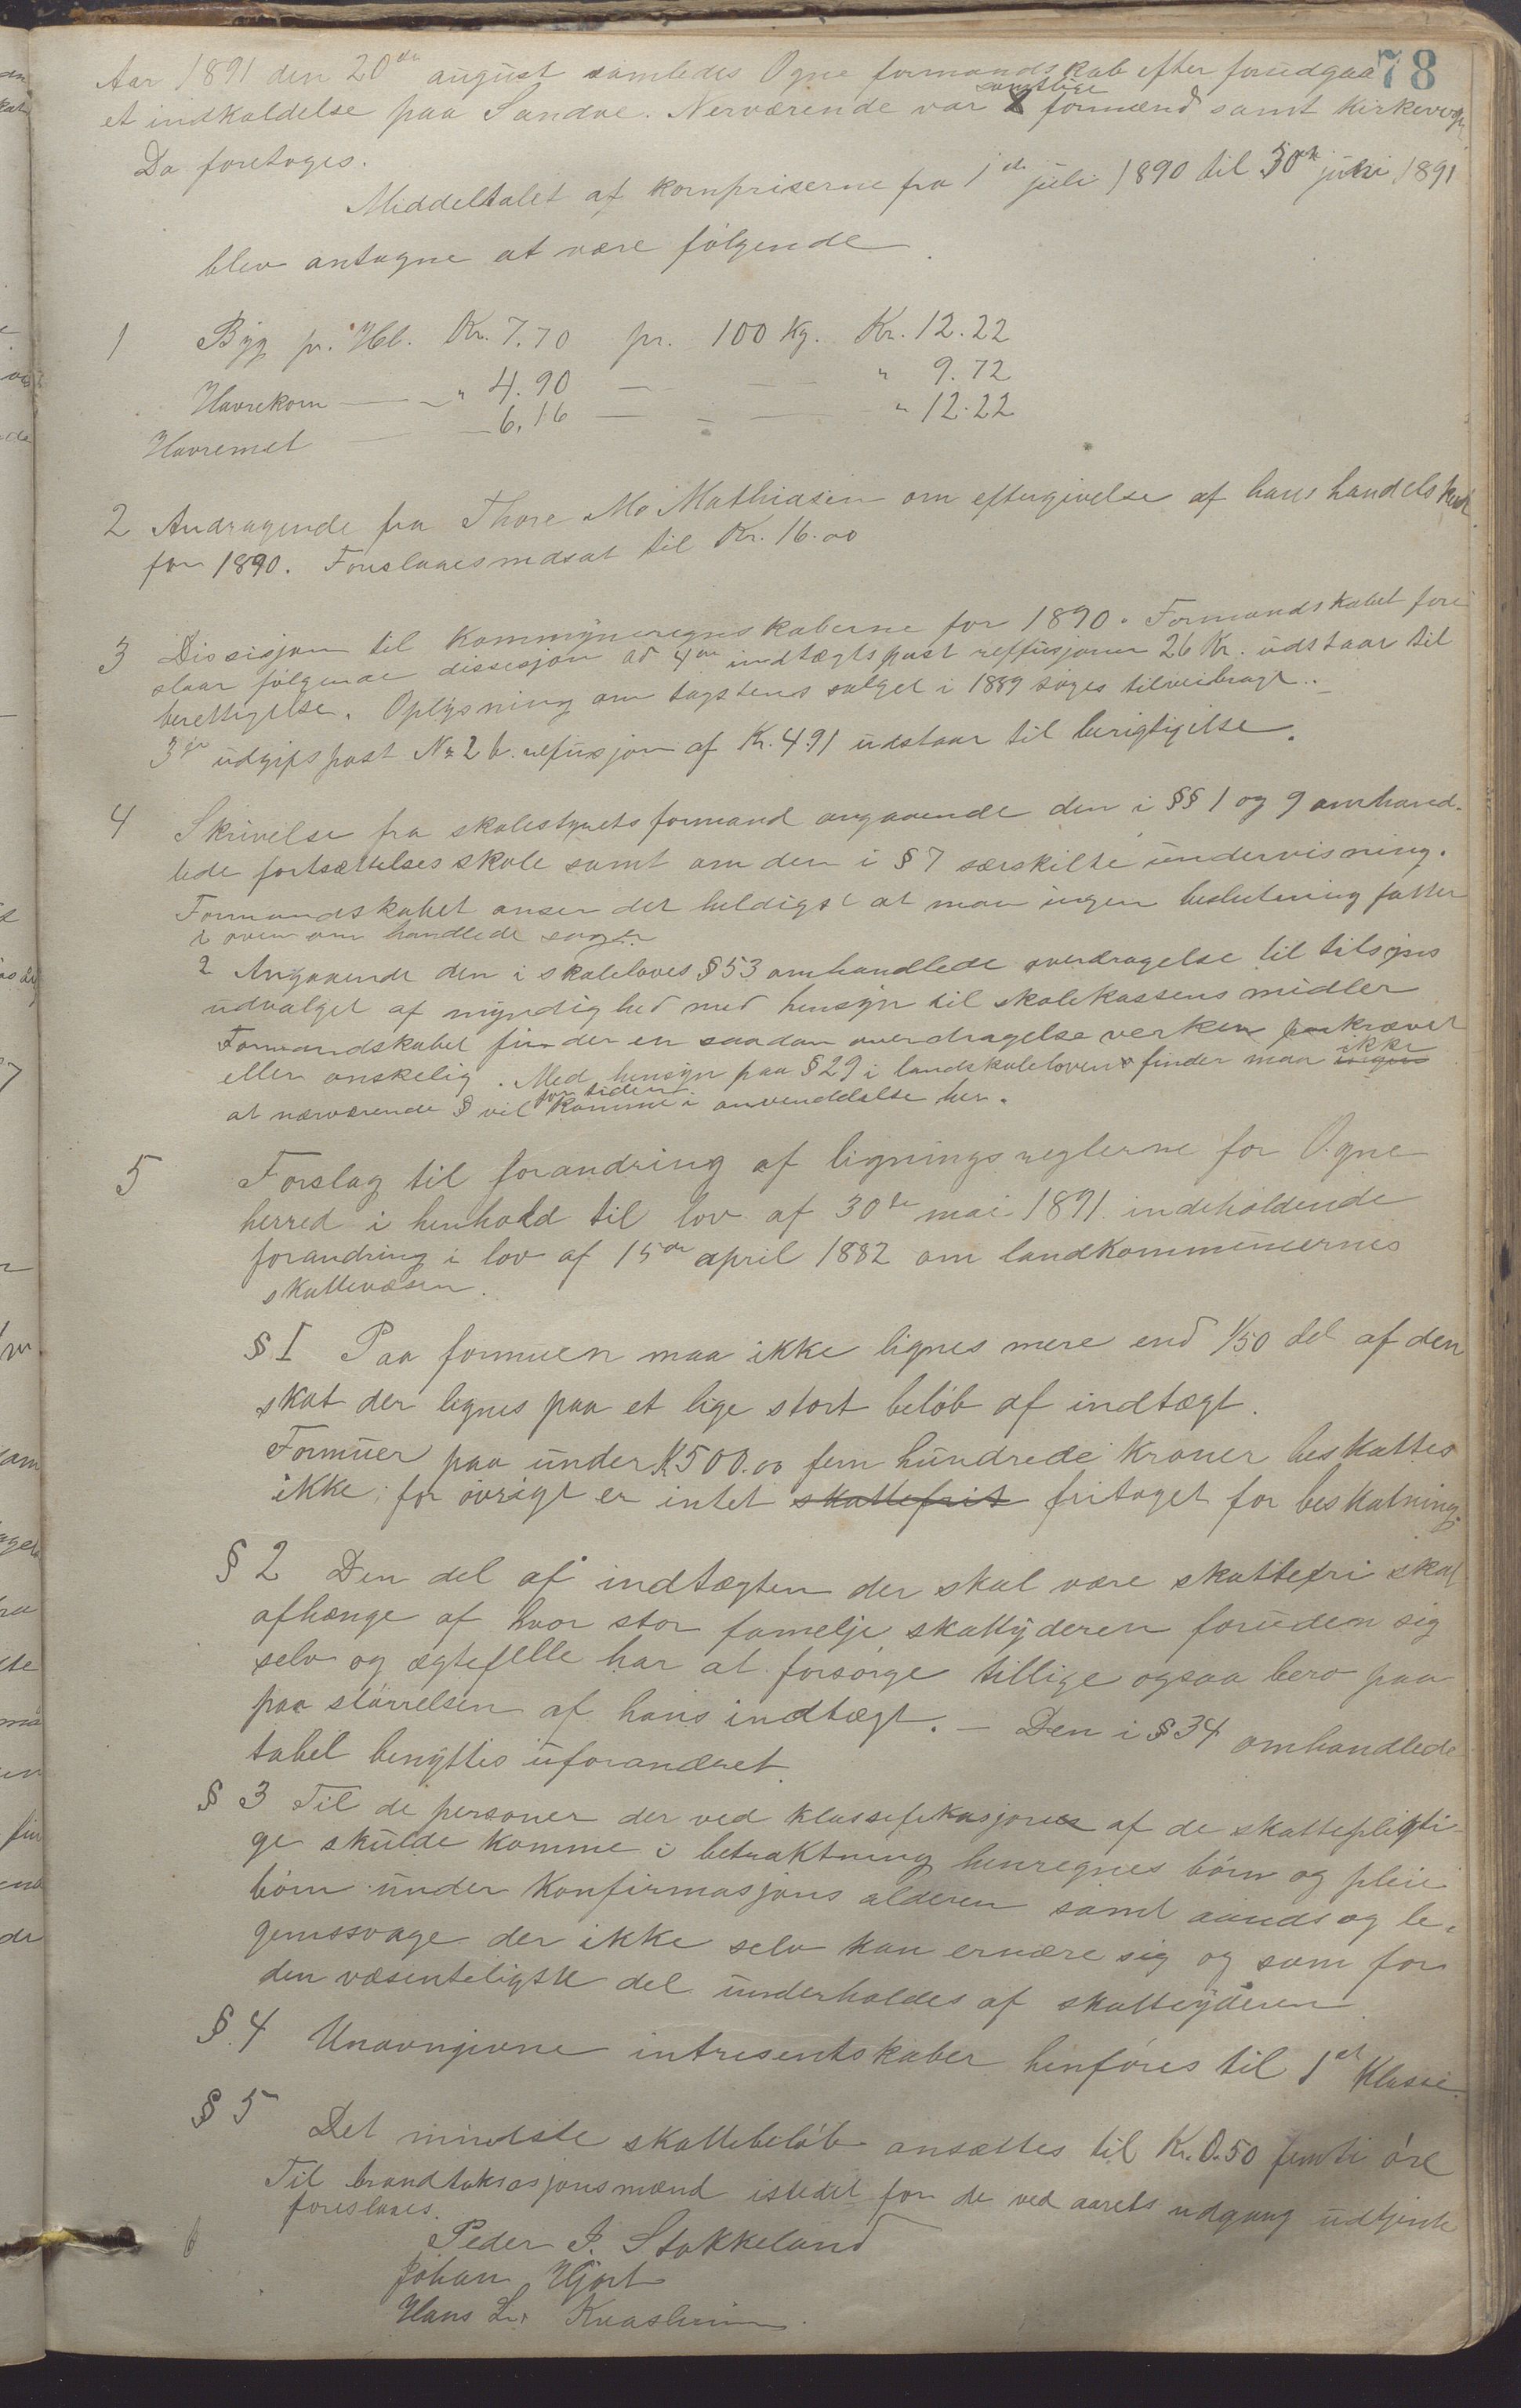 78
Aar 1891 den 20de august samledes Ogne formandskab efter forudgaa
et indkaldelse paa Sandve. Nerværende var samtlige formænd samt kirkeverge
Da foretoges.
Middeltalet af kornpriserne fra 1ste juli 1890 til 30te juni 1891
blev antagne at være følgende
1 Byg pr. Hel. Kr. 7.70 pr. 100 Kg. Kr. 12.22
Havrekorn — — " 4.90 — — — " 9.72
Havremel — — 6.16 — - — " 12.22
2 Andragende fra Thore Mo Mathiasen om eftergivelse af hans handelsskat
for 1890. Foreslaaes nedsat til Kr. 16.00
3 Dissisjon til Kommyneregnskaberne for 1890. Formandskabet fore
slaar følgende dissesjon ad 4de indtægtspost reffusjoner 26 Kr. udstaar til
berettigelse. Oplysning om tagstens salget i 1889 søges tilveibragt.
3die udgifspost No 2 b. refusjon af Kr. 4.91 udstaar til berigtigelse.
4 Skrivelse fra skolestyrets formand angaaende den i §§ 1 og 9 omhand-
lede fortsættelsesskole samt om den i § 7 særskilte undervisning.
Formandskabet anser det heldigst at man ingen beslutning fatter
i oven om handlede sager
2 Angaaende den i skoleloves § 53 omhandlede overdragelse til tilsyns
udvalget af myndighed med hensyn til skolekassens midler
Formandskabet finder en saadan overdragelse verken paakrævet
eller ønskelig. Med hensyn paa § 29 i landskoleloven finder man ikke
at nærværende § vil for tiden komme i anvenddelse her.
5 Forslag til forandring af ligningsreglerne for Ogne
herred i henhold til lov af 30te mai 1891 indeholdende
forandring i lov af 15de april 1882 om landkommunernes
skattevæsen.
§ 1 Paa formuen maa ikke lignes mere end 1/50 del af den
skat der lignes paa et lige stort beløb af indtægt.
Formuer paa under K 500.00 fem hundrede kroner beskattes
ikke; for øvrigt er intet skattefrit fritaget for beskatning.
§ 2 Den del af indtægten der skal være skattefri skal
afhænge af hvor stor famelje skattyderen foruden sig
selv og ægtefelle har at forsørge tillige ogsaa bero paa
paa størrelsen af hans indtægt. — Den i § 34 omhandlede
tabel benyttes uforandret
§ 3 Til de personer der ved klassefikasjonen af de skattepligti-
ge skulde komme i betraktning henregnes børn og pleie
børn under konfirmasjons alderen samt aands og le-
gemssvage der ikke selv kan ernære sig og som for
den væsenteligste del underholdes af skatteyderen
§ 4 Unavngivne intresentskaber henføres til 1ste Klasse.
§ 5 Det mindste skattebeløb ansættes til Kr. 0.50 femti øre
6 Til brandtaksasjonsmænd istedet for de ved aarets udgang udtjente
foreslaaes.
Peder J. Stokkeland
Johan Hjort
Hans L. Kvasheim